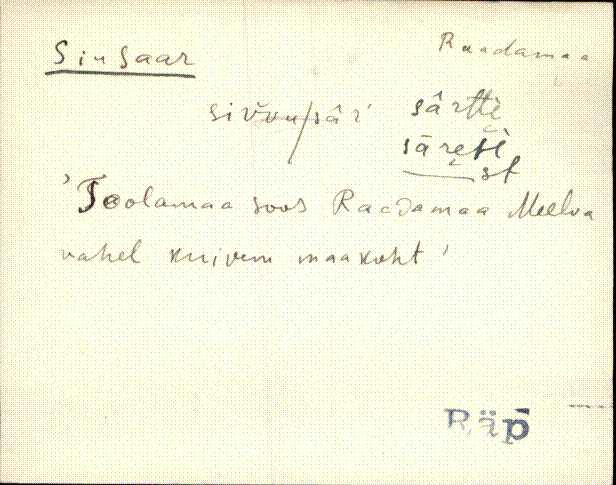 Siusaar
Raadamaa
sâr' sārtte
st
'Toolamaa soos Raadamaa Meelva
vahel kuivem maakoht'
Räp